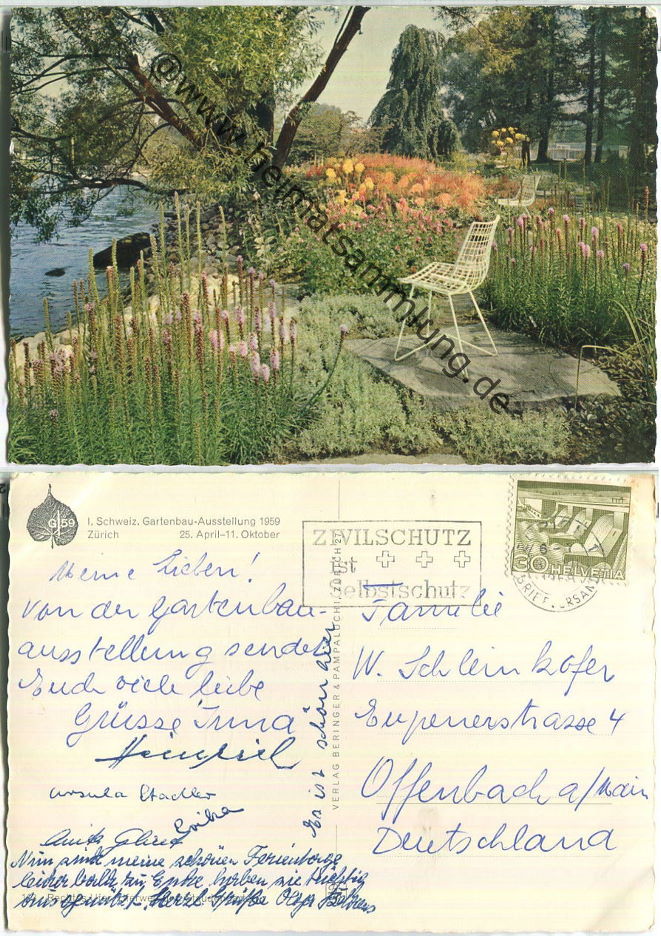 ©www.heimatsammlung.de
G59
I. Schweiz. Gartenbau-Ausstellung 1959
Zürich 25. April–11. Oktober
ZIVILSCHUTZ
ist
Selbstschutz
30 HELVETIA
BRIEFVERSAND
Meine Lieben!
Von der Gartenbau-
ausstellung senden
Euch viele liebe
Grüsse Irma
Heinrich
Ursula Stadler
Erika
Es ist schön hier
VERLAG BERINGER & PAMPALUCHI, ZÜRICH
Familie
W. Schleinkofer
Eupenerstrasse 4
Offenbach a/Main
Deutschland
Nun sind meine schönen Ferientage
leider bald zu Ende, haben sie richtig
ausgenützt. Herzl. Grüße Olga